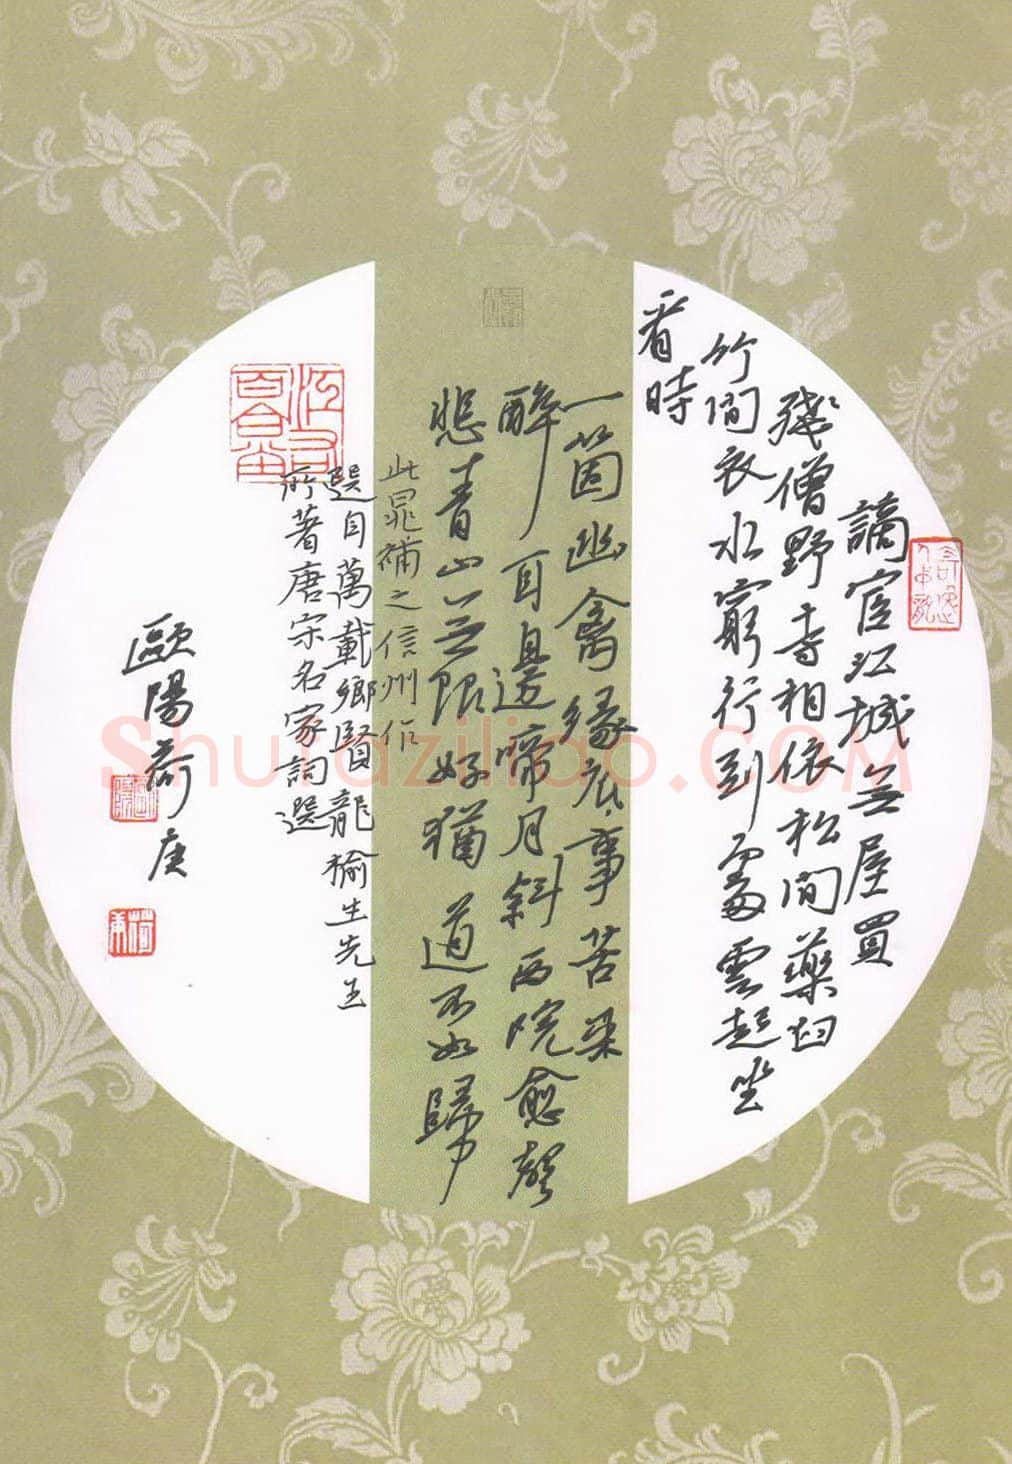 謫宦江城無屋買
殘僧野寺相依松間藥臼
竹間衣水窮行到處雲起坐
看時
一箇幽禽緣底事苦來
醉耳邊啼月斜西院愈聲
悲青山无限好猶道不如歸
此晁補之信州作
選自萬載鄉賢龍榆生先生
所著唐宋名家詞選
歐陽荷庚
Shufaziliao.COM